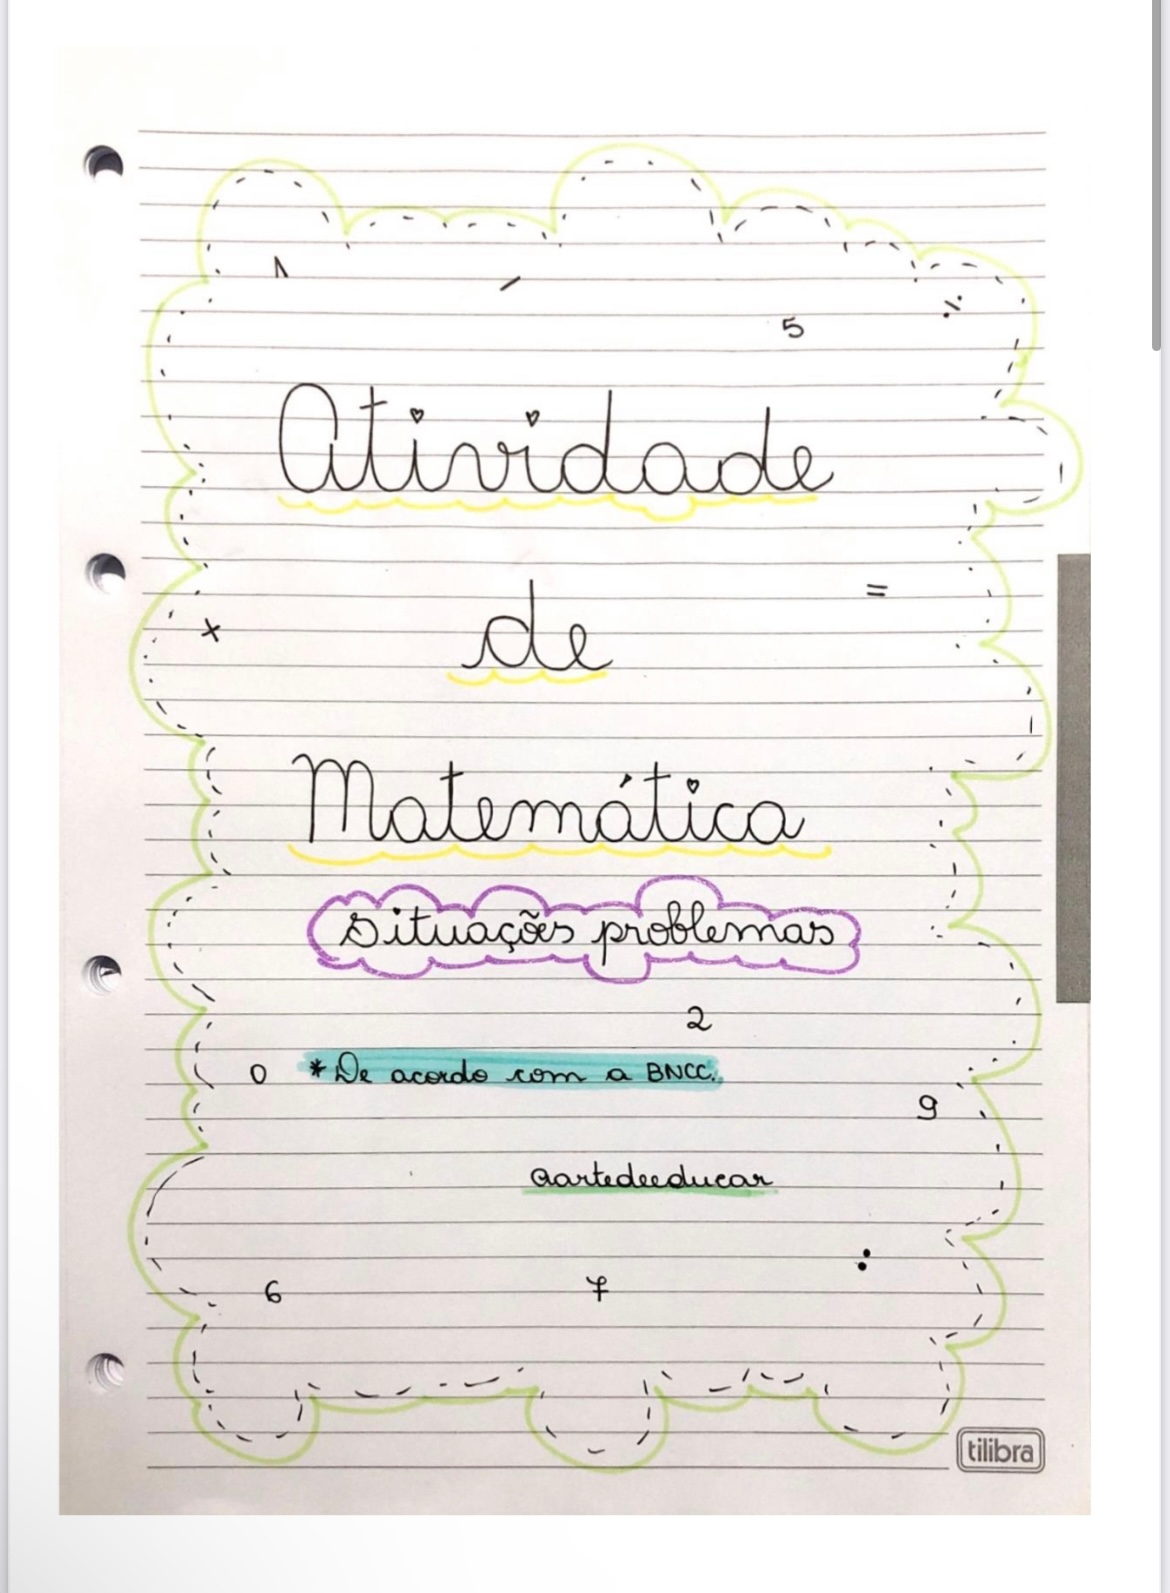 1 -
5 ÷
Atividade
de
=
x
Matemática
situações problemas
2
0 *De acordo com a BNCC.
9
@artedeeducar
:
6 7
tilibra